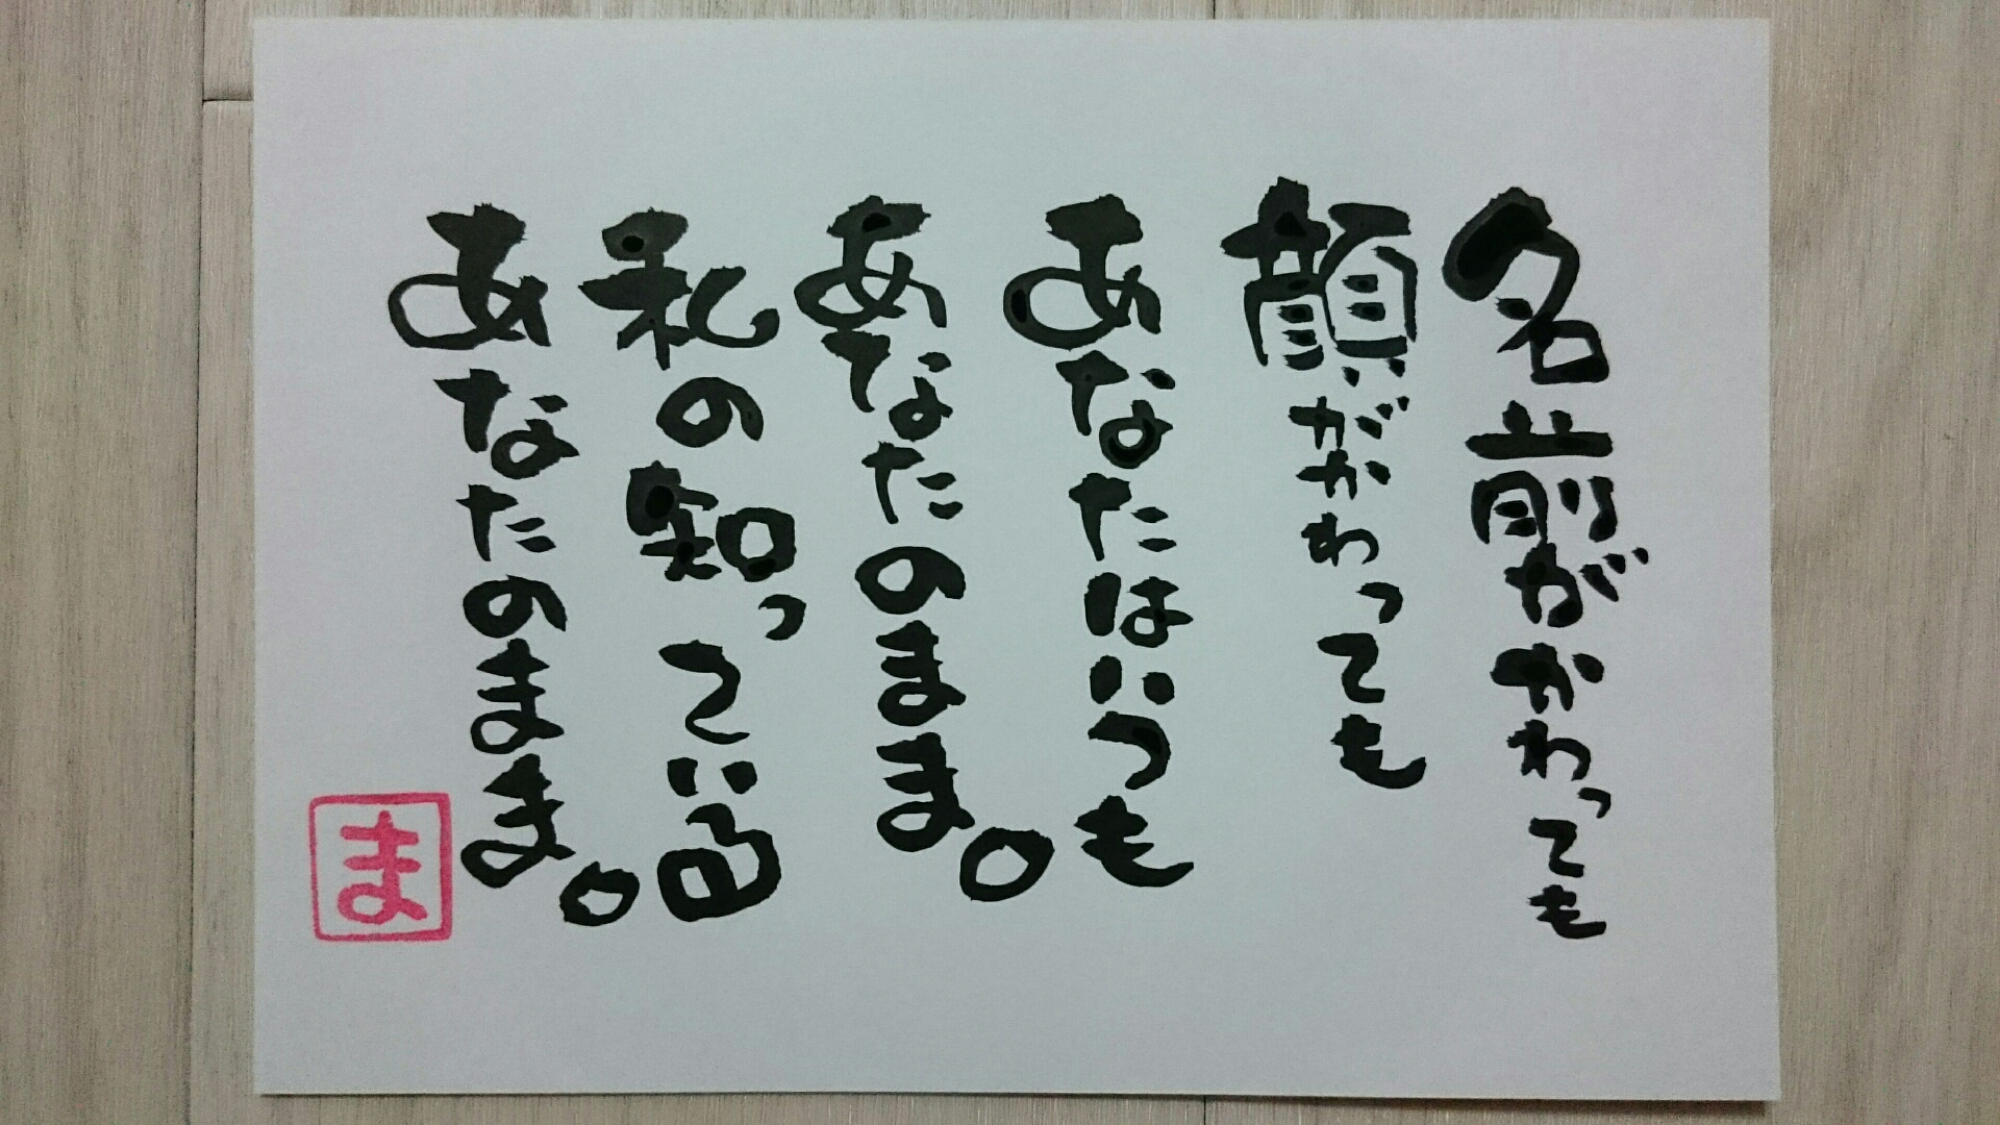 名前がかわっても
顔がかわっても
あなたはいつも
あなたのまま。
私の知っている
あなたのまま。
ま